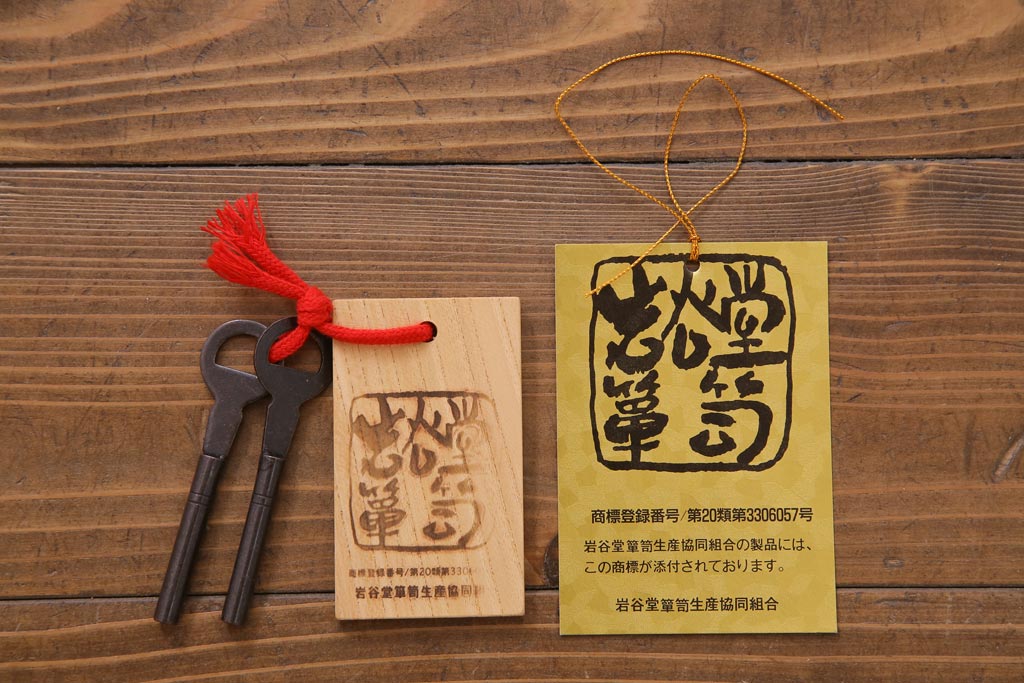 岩谷堂
簞笥
商標登録番号/第20類第330
岩谷堂簞笥生産協同
岩谷堂
簞笥
商標登録番号/第20類第3306057号
岩谷堂簞笥生産協同組合の製品には、
この商標が添付されております。
岩谷堂簞笥生産協同組合